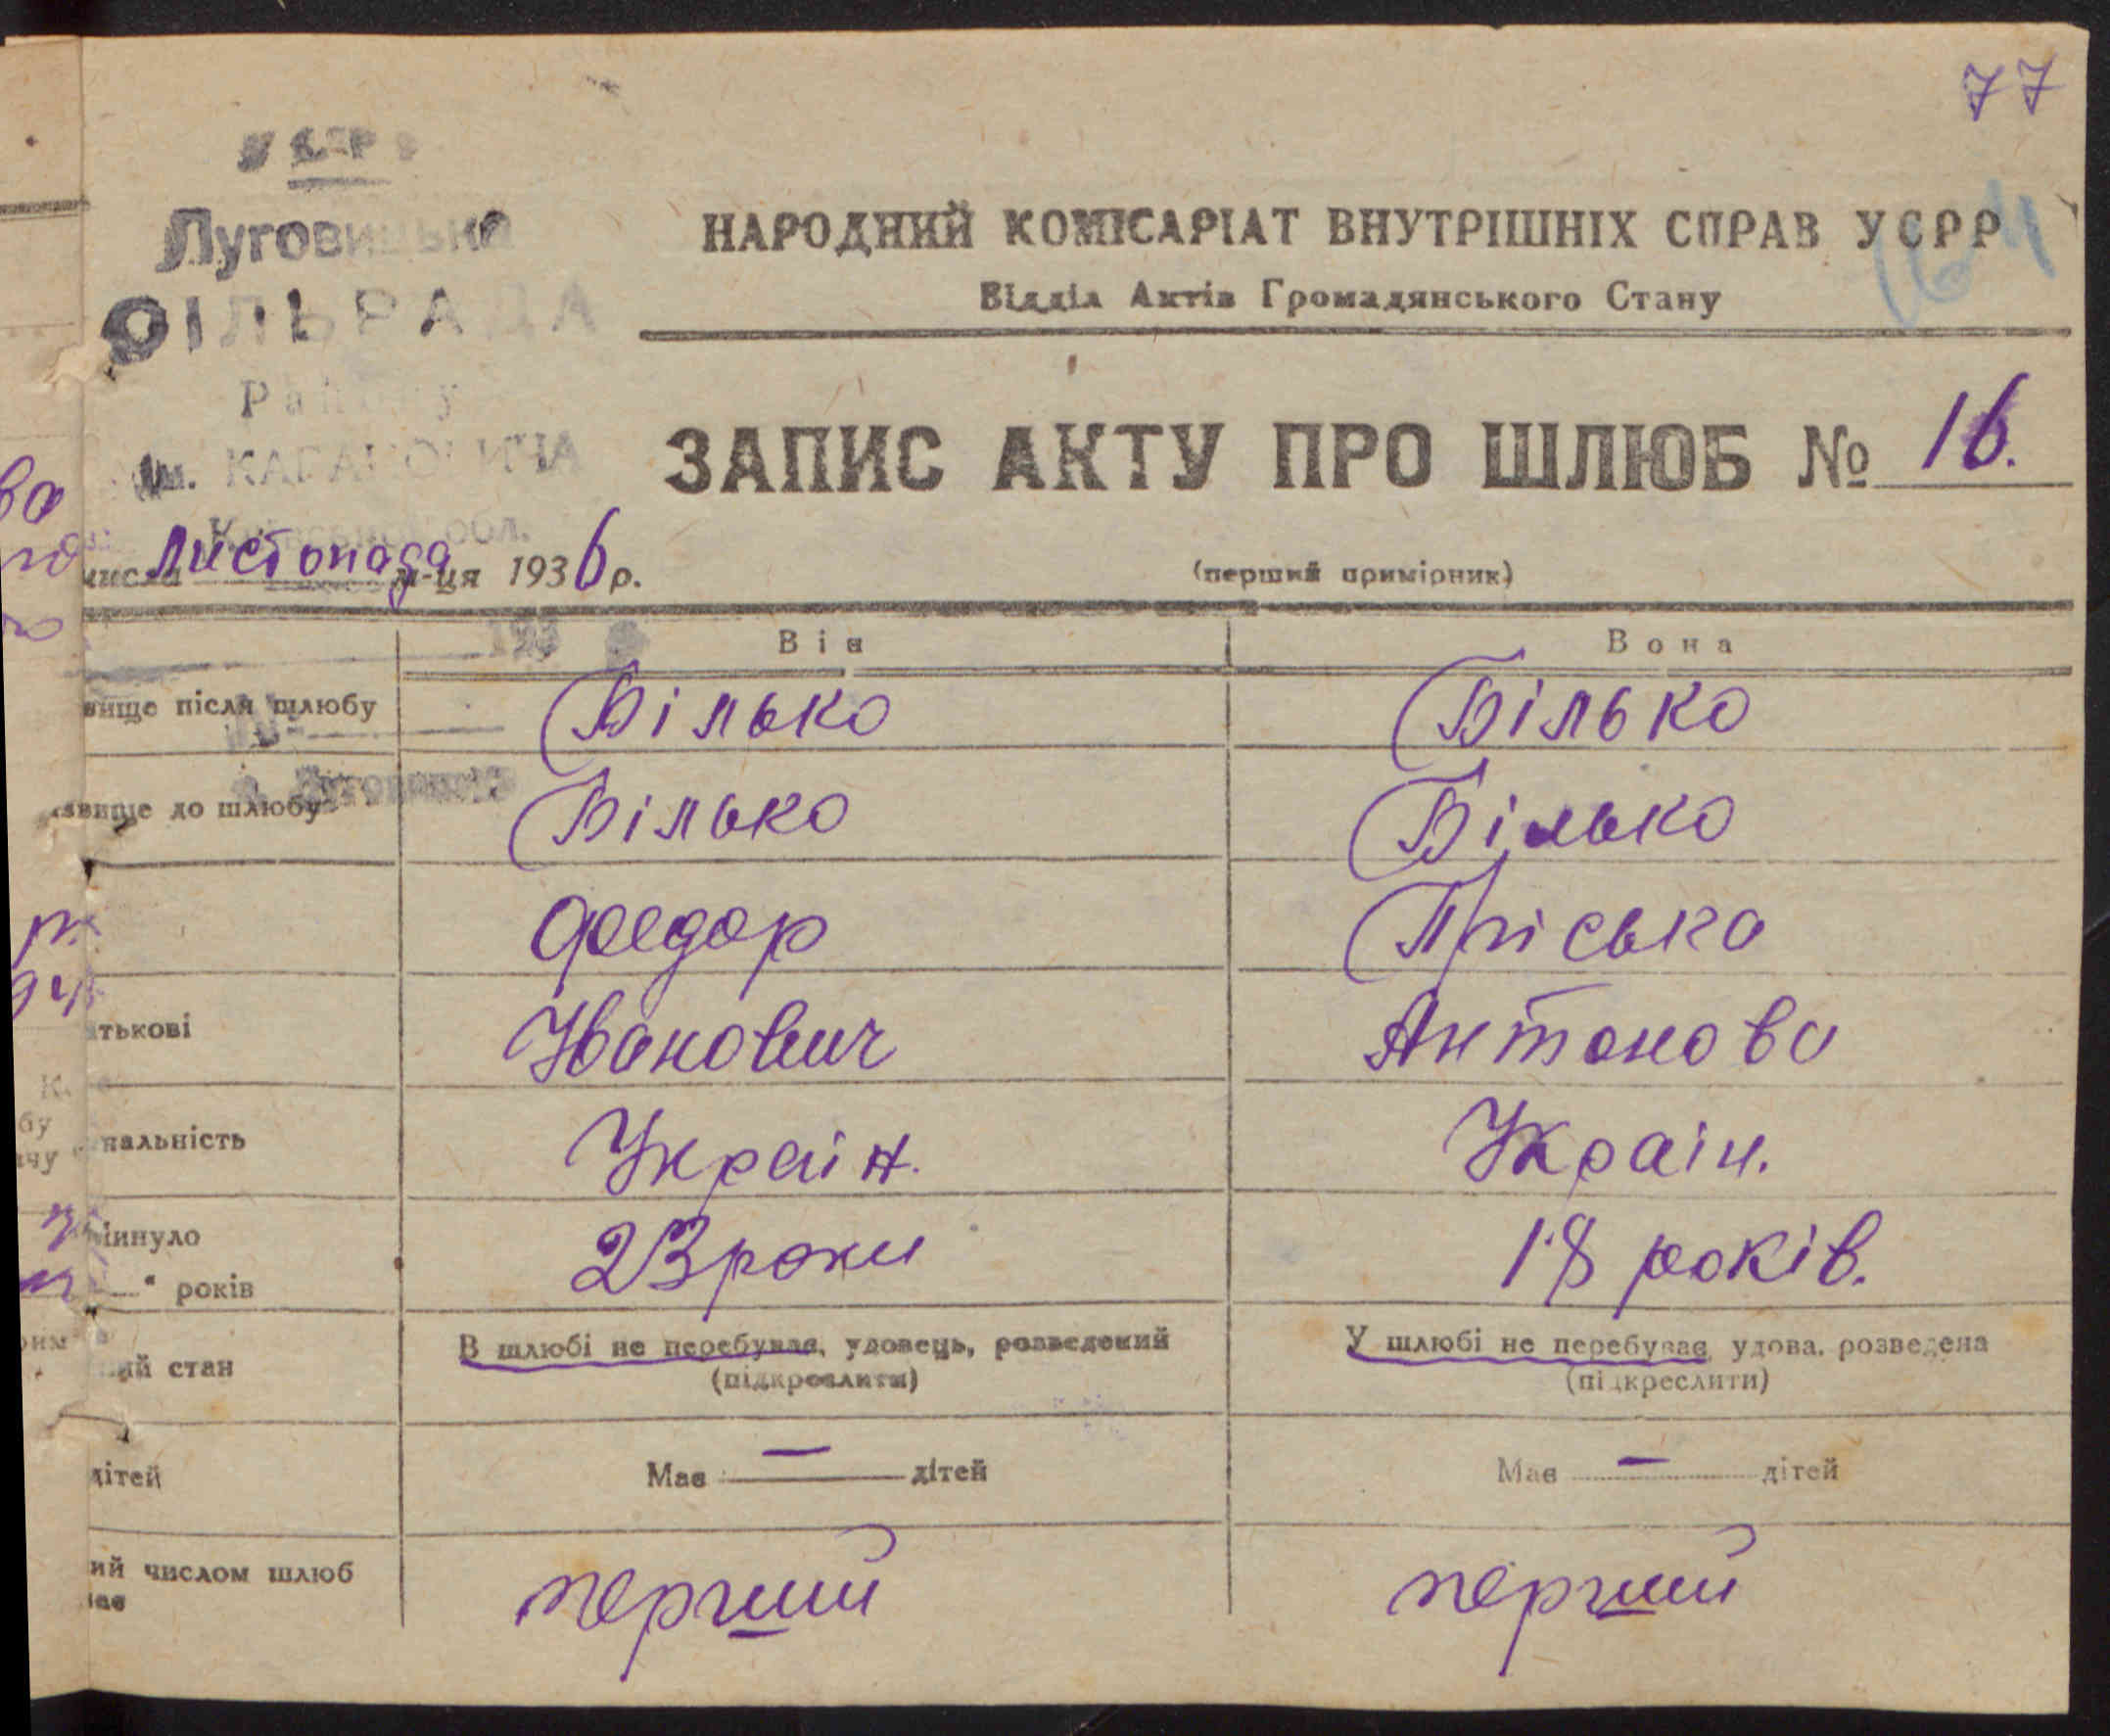 77
УСРР
Луговицька
СІЛЬРАДА
Району
ім. КАГАНОВИЧА
Київської обл.
НАРОДНИЙ КОМІСАРІАТ ВНУТРІШНІХ СПРАВ УСРР
164
Відділ Актів Громадянського Стану
ЗАПИС АКТУ ПРО ШЛЮБ № 16.
числа Листопада м-ця 1936 р.
(перший примірник)
193
Він Вона
вище після шлюбу Білько Білько
звище до шлюбу Білько Білько
Федор Пріська
тькові Іванович Антонова
нальність Украін. Украін.
минуло
" років 23 роки 18 років.
ий стан В шлюбі не перебуває, удовець, розведений У шлюбі не перебуває, удова, розведена
(підкреслити) (підкреслити)
дітей Має — дітей Має — дітей
ий числом шлюб
ває перший перший